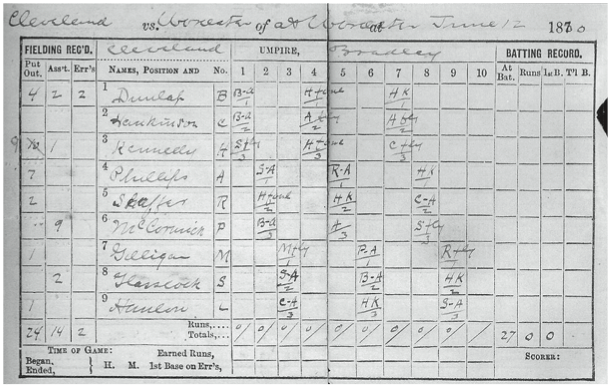 Cleveland vs. Worcester of at Worcester June 12 1880
FIELDING REC'D. Cleveland UMPIRE, Bradley BATTING RECORD.
Put Out. Ass't. Err's NAMES, POSITION AND No. 1 2 3 4 5 6 7 8 9 10 At Bat. Runs 1st B. T'l B.
4 2 2 1 Dunlap B B-A/1 H+out/1 HK/1
2 Hankinson C B-A/2 A fly/2 A fly/2
1 3 Kennedy H S fly/3 H+out/3 C fly/3
7 4 Phillips A S-A/1 R-A/1 HK/1
2 5 Shaffer R H+out/2 HK/2 C-A/2
9 6 McCormick P B-A/3 A/3 S fly/3
1 7 Gilligan M M fly/1 P-A/1 R fly/1
2 8 Glasscock S S-A/2 B-A/2 HK/2
1 9 Hanlon L C-A/3 HK/3 S-A/3
24 14 2 Runs,.... Totals,... 0/0 0/0 0/0 0/0 0/0 0/0 0/0 0/0 0/0 27 0 0
TIME OF GAME: Earned Runs, SCORER:
Began. Ended, H. M. 1st Base on Err's,